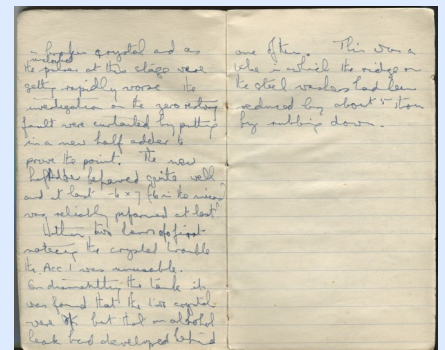 crystal and as
the pulses at this stage were
getting rapidly worse the
investigation on the zero
fault were curtailed by putting
in a new half adder to
prove the point. The new
half adder behaved quite well
and at last -6 x 7
very reliably performed at last
Within two hours of first
noticing the crystal trouble
the Acc 1 was unusable.
On dismantling the tank it
was found that the two crystals
were but that an alcohol
leak had developed behind
one of them. This was a
tube in which the ridge on
the steel washer had been
reduced by about
by rubbing down.